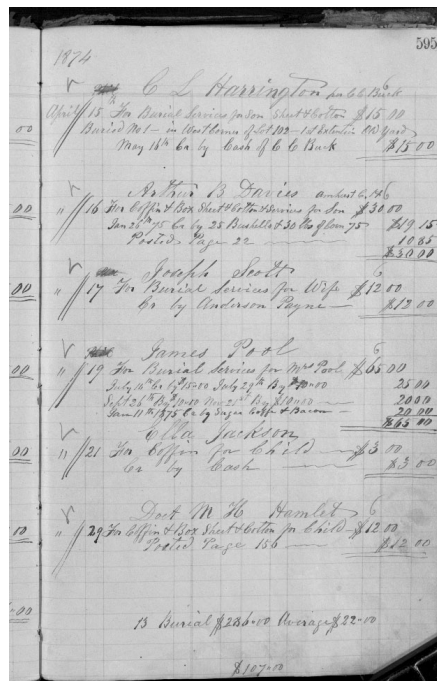 595
1874
C L Harrington per C C Buck
April 15 For Burial Services for Son Sheet & Cotton $15.00
Buried No 1 - in West corner of Lot 102 - 1st Extention Old Yard
May 18th Cr by Cash of C C Buck $15.00
Arthur B Davies Amherst C. H.
" 16 For Coffin & Box Sheet & Cotton & Services for Son $30.00
Jan 26th 75 Cr by 25 Bushells & 30 lbs of Corn 75 $19.15
Posted Page 22 10.85
$30.00
Joseph Scott
" 17 For Burial Services for Wife $12.00
Cr by Anderson Payne $12.00
James Pool
" 19 For Burial Services for Mrs Pool $65.00
July 16th Cr by 15-00 July 29th By $10-00 25 00
Sept 26th By 10-00 Nov 21st By $10-00 20 00
Jan 11th 1875 Cr by Sugar Coffe & Bacon 20 00
$65.00
Ella Jackson
" 21 For Coffin for Child $3 00
Cr by Cash $3 00
Doct M H Hamlet
" 29 For Coffin & Box Sheet & Cotton for Child $12 00
Posted Page 156 $12 00
13 Burial $286-00 Average $22-00
$107-00